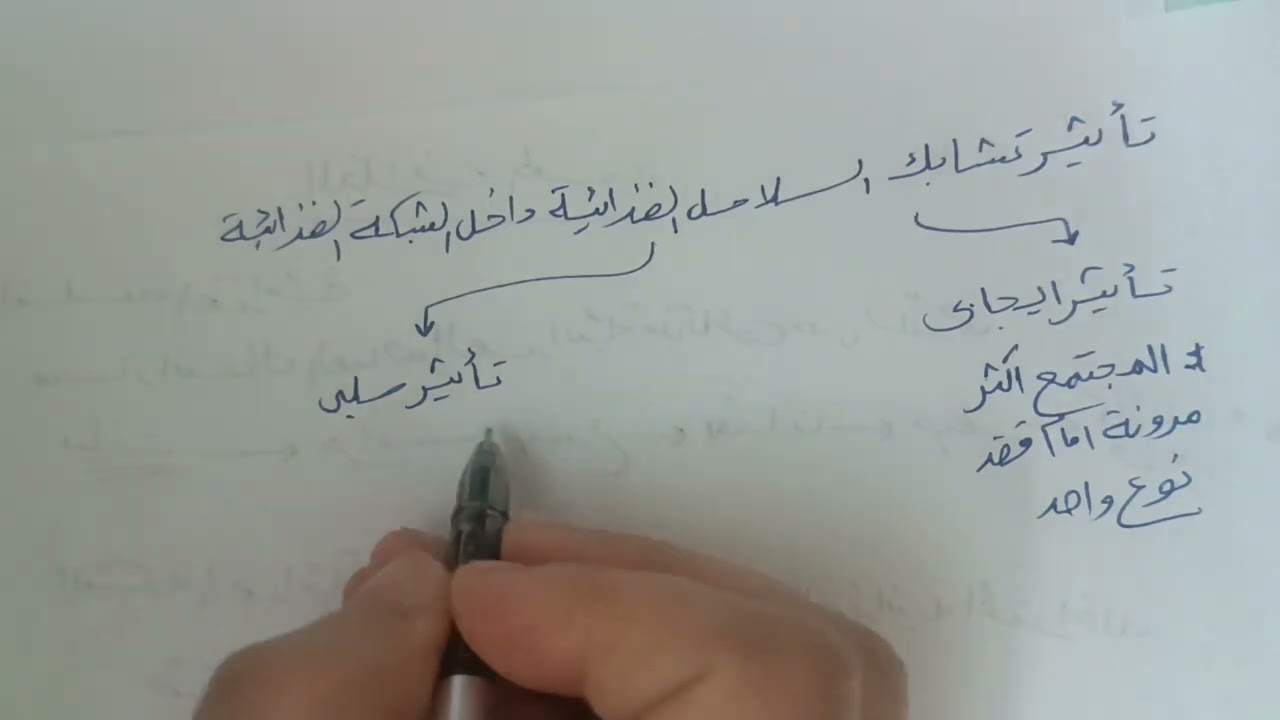 تأثير تشابك السلاسل الغذائية داخل الشبكة الغذائية
تأثير ايجابى
* المجتمع اكثر
مرونة اما افقد
نوع واحد
تأثير سلبى